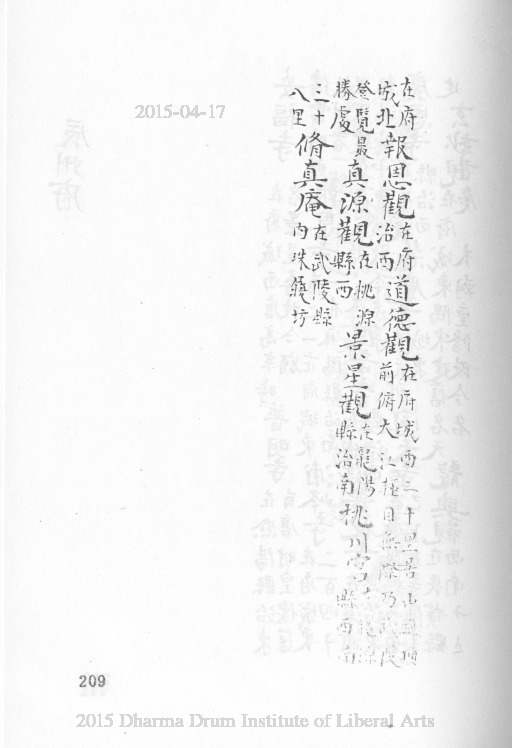 在府城北報恩觀在府治西道德觀在府城西二十里山頂前俯大江極目無際乃武陵
登覽最勝處真源觀在桃源縣西景星觀在龍陽縣治南桃川宮在桃源縣西南
三十八里脩真庵在武陵縣內珠坊
2015-04-17
209
2015 Dharma Drum Institute of Liberal Arts